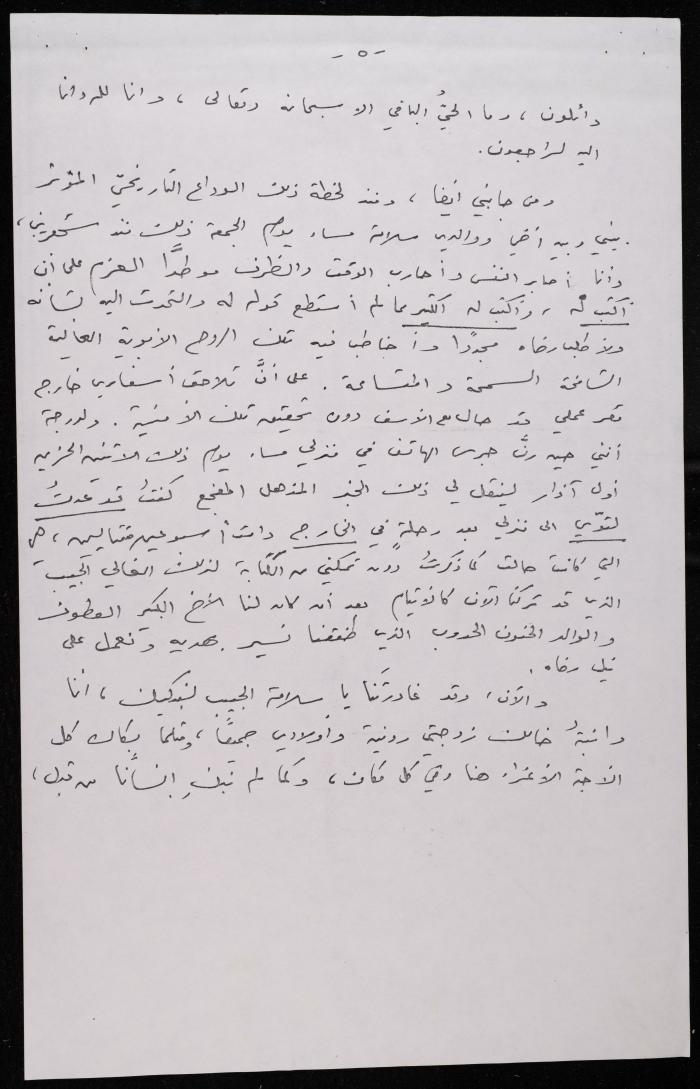 - ٥ -
زائلون ، وما الحيُّ الباقي الا سبحانه وتعالى ، وانا لله وانا
اليه لراجعون .
ومن جانبي أيضا ، ومنذ لحظة ذلك الوداع التاريخيّ المؤثر
بيني وبين أخي ووالدي سلامة مساء يوم الجمعة ذلك منذ شهرين ،
وأنا أحاسب النفس وأحارب الوقت والظرف موطداً العزم على أن
أكتب له ، وأكتب له الكثير مما لم أستطع قوله له والتحدث اليه بشأنه
ولأطلب رضاه مجدداً وأخاطب فيه تلك الروح الأبوية الغالية
الشامخة السمحة والمتسامحة . على أنَّ تلاحق أسفاري خارج
مقر عملي قد حال مع الاسف دون تحقيق تلك الأمنية . ولدرجة
أنني حين رنَّ جرس الهاتف في منزلي مساء يوم ذلك الاثنين الحزين
أول آذار لينقل لي ذلك الخبر المذهل المفجع كنتُ قد عدتُ
لتوّي الى منزلي بعد رحلةٍ في الخارج دامت أسبوعين متتاليين ، هي
التي كانت حالت كما ذكرتُ دون تمكني من الكتابة لذلك الغالي الحبيب
الذي قد تركنا الآن كالأيتام بعد أن كان لنا الأخ البكر العطوف
والوالد الحنون الحدوب الذي طفقنا نسير بهديه ونعمل على
نيل رضاه .
والآن ، وقد غادرتَنا يا سلامة الحبيب لنبكيك ، أنا
وابنةُ خالك زوجتي رونية وأولادي جميعاً ، ومثلما بكاك كل
الأحبة الأعزاء هنا وفي كل مكان ، وكما لم نبكِ إنساناً من قبل ،